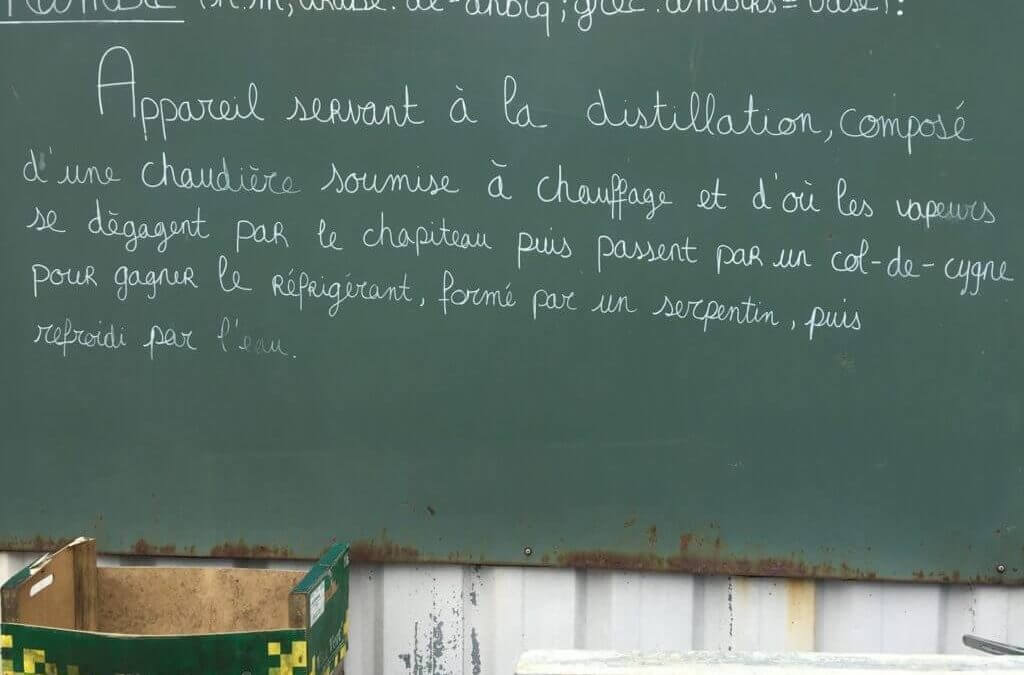 (n.m, arabe: al-anbiq; grec: ambiks = vase):
Appareil servant à la distillation, composé
d'une chaudière soumise à chauffage et d'où les vapeurs
se dègagent par le chapiteau puis passent par un col-de-cygne
pour gagner le réfrigérant, formé par un serpentin, puis
refroidi par l'eau.